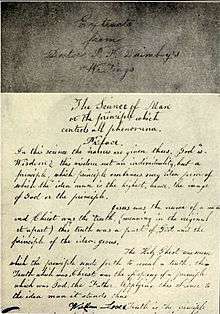 Extracts
from
Doctor P. P. Quimby's
Writings
The Science of Man
or the principle which
controls all phenomena.
Preface.
In this science the names are given thus, God is
Wisdom; this wisdom not an individuality, but a
principle, which principle embraces every idea form of
which the idea man is the highest, hence, the image
of God or the principle.
Jesus was the name of a man
and Christ was the truth (meaning in the original
this truth was a part of God and the
principle of the idea, Jesus,
The Holy Ghost
which the principle
Truth which was Christ was the offspring of a principle
which was God, the Father. Applying this science to
the idea man it stands thus
Wisdom Love Truth is the principle